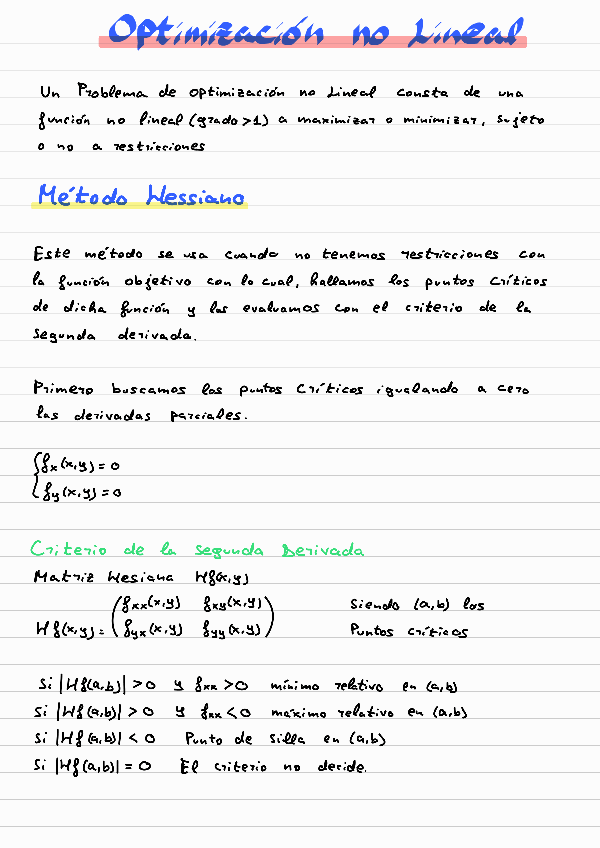 Optimización no Lineal
Un Problema de optimización no Lineal consta de una
función no lineal (grado>1) a maximizar o minimizar, sujeto
o no a restricciones
Método Hessiano
Este método se usa cuando no tenemos restricciones con
la función objetivo con lo cual, hallamos los puntos críticos
de dicha función y los evaluamos con el criterio de la
segunda derivada.
Primero buscamos los puntos críticos igualando a cero
las derivadas parciales.
{fx(x,y) = 0
fy(x,y) = 0
Criterio de la segunda Derivada
Matriz Hesiana Hf(x,y)
Hf(x,y) = (fxx(x,y) fxy(x,y)
fyx(x,y) fyy(x,y))
Siendo (a,b) los
Puntos críticos
Si |Hf(a,b)| > 0 y fxx > 0 mínimo relativo en (a,b)
Si |Hf(a,b)| > 0 y fxx < 0 máximo relativo en (a,b)
Si |Hf(a,b)| < 0 Punto de silla en (a,b)
Si |Hf(a,b)| = 0 El criterio no decide.